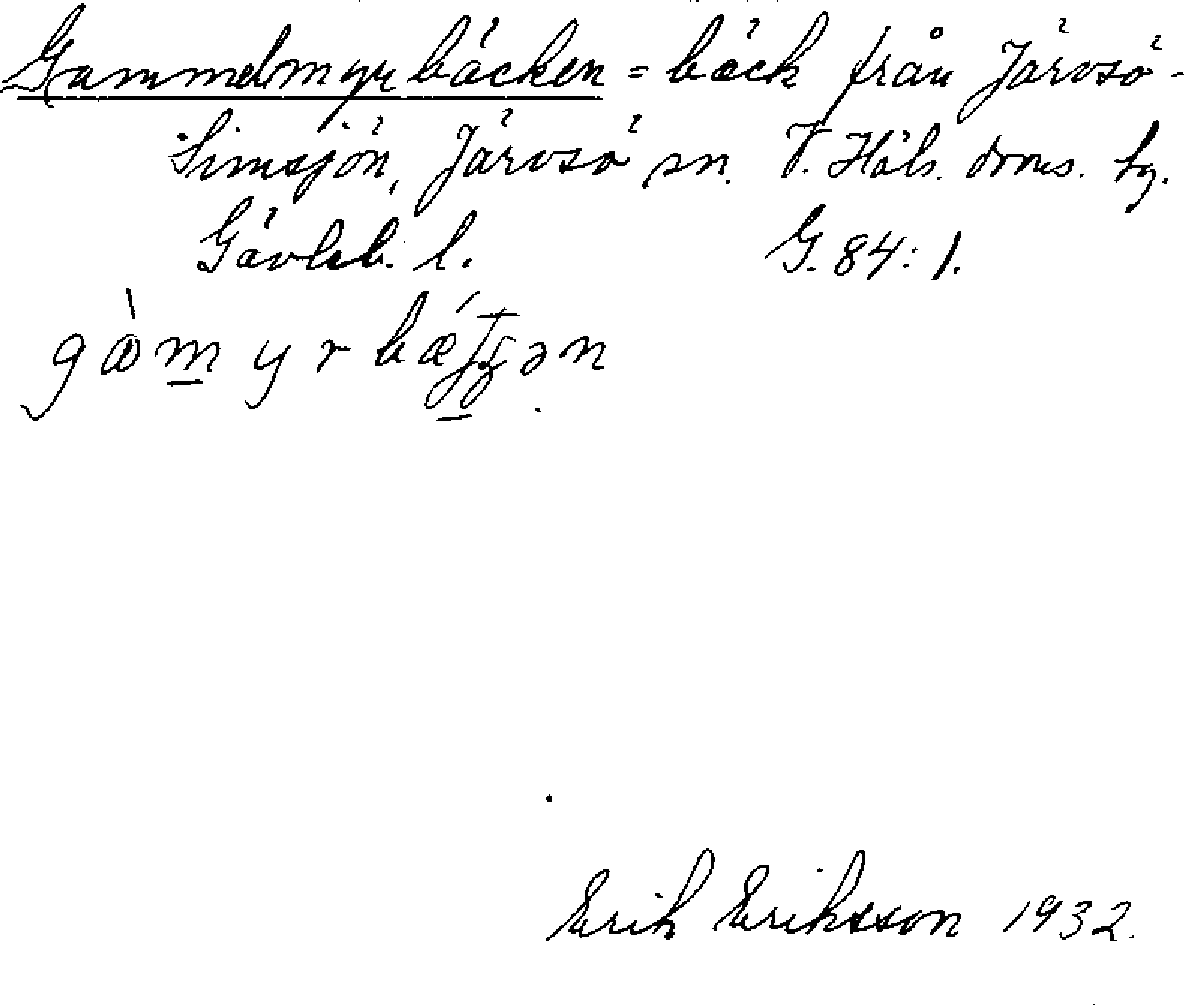 Gammelmyrbäcken = bäck från Järvsö-
Simsjön, Järvsö sn. V. Häls. doms. hg.
Gävleb. l. G. 84:1.
Erik Eriksson 1932.